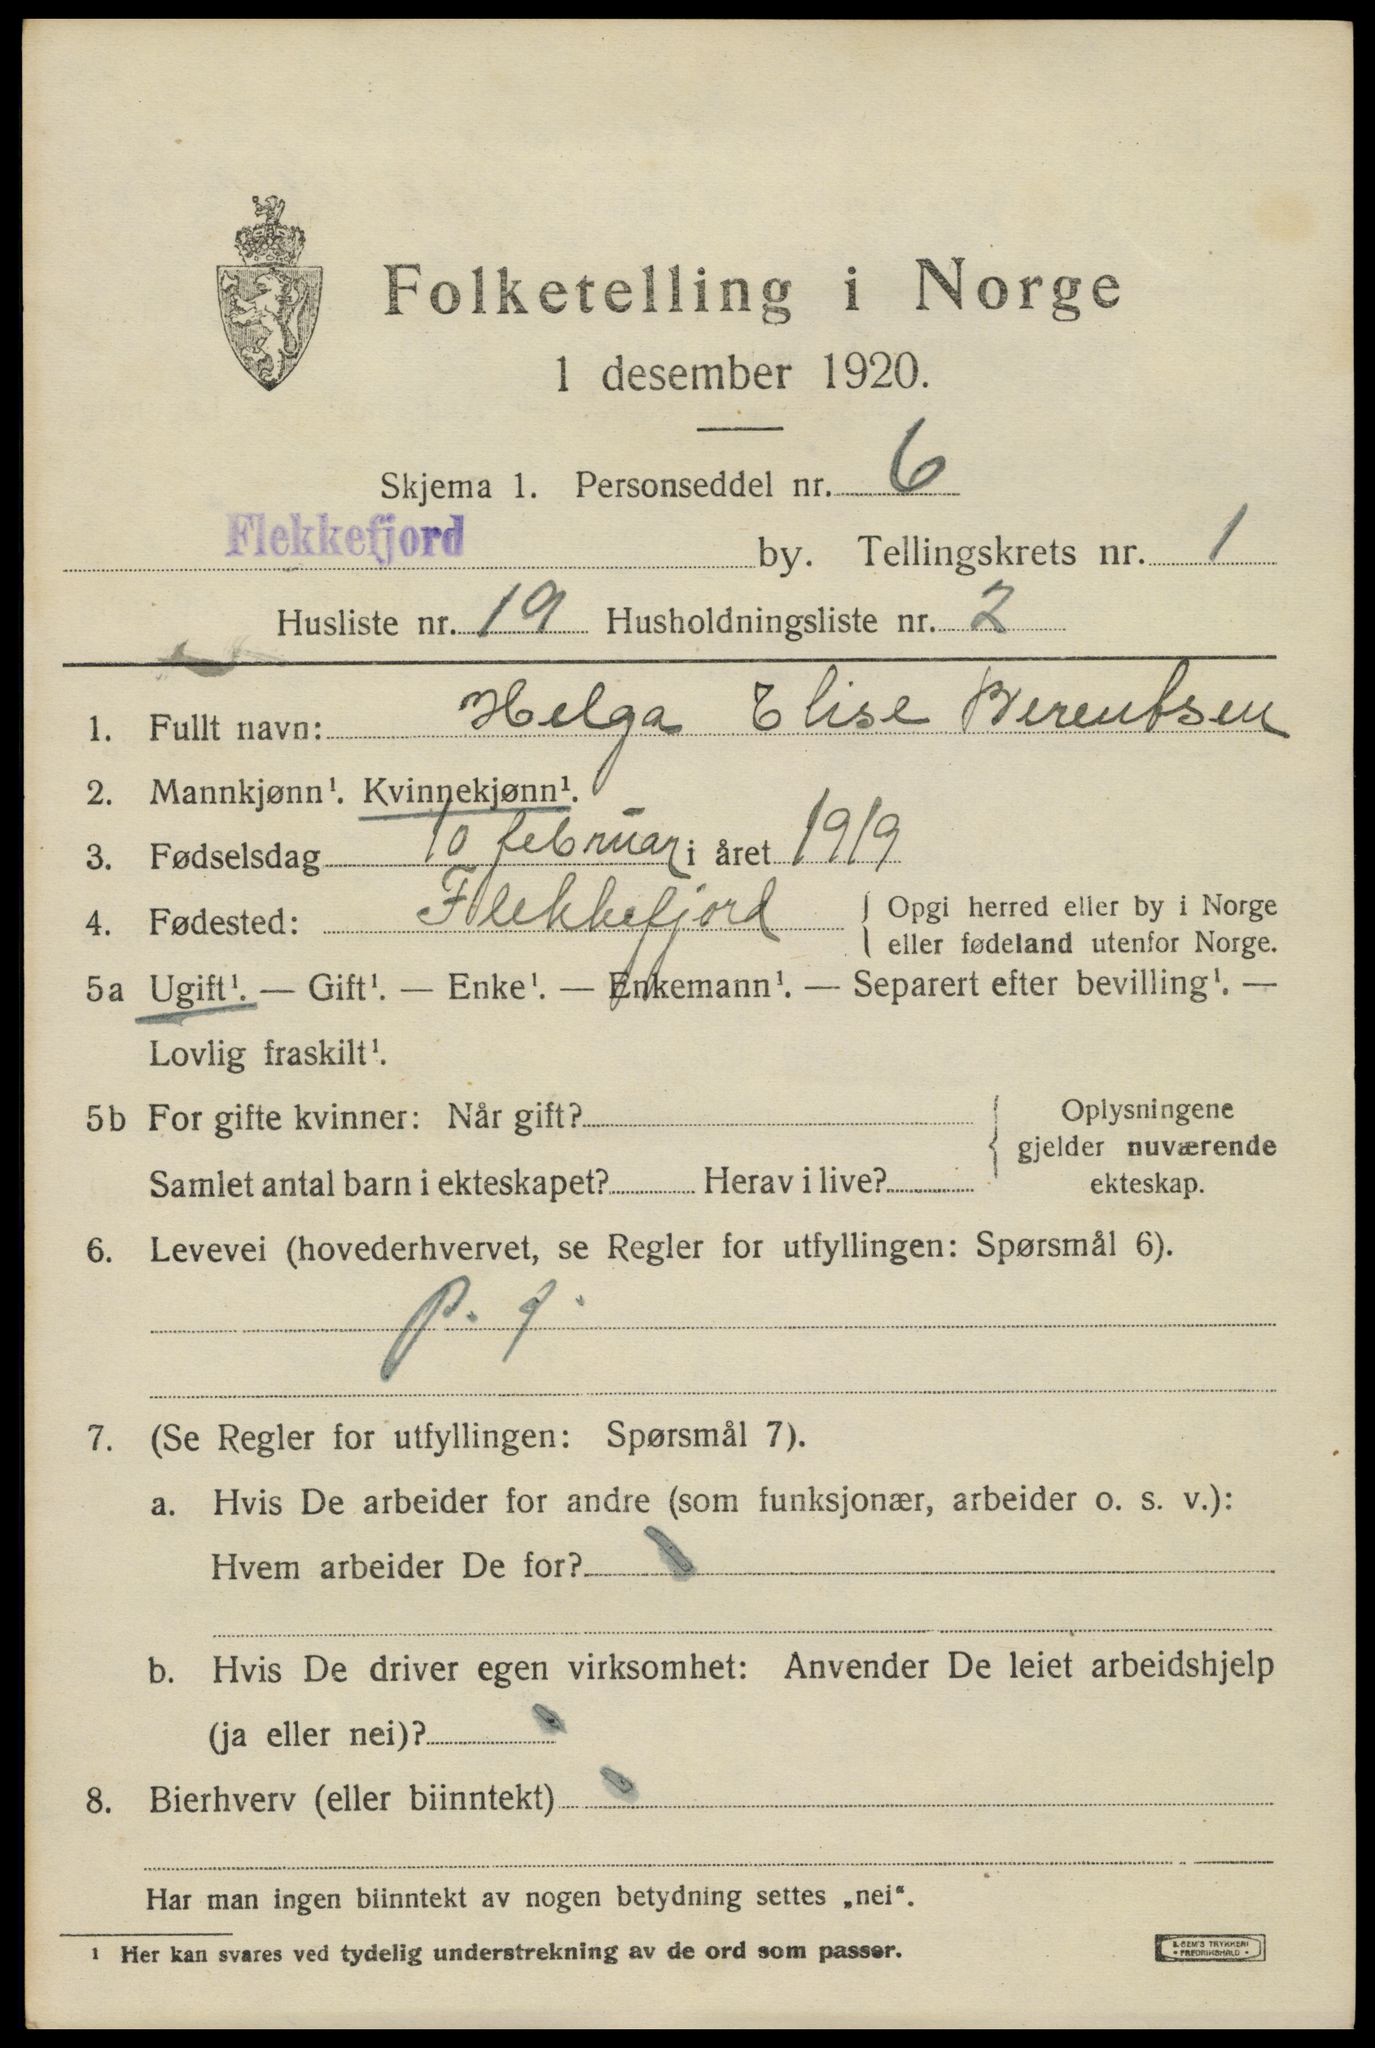 Folketelling i Norge
1 desember 1920.
Skjema 1. Personseddel nr. 6
Flekkefjord by. Tellingskrets nr. 1
Husliste nr. 19 Husholdningsliste nr. 2
1. Fullt navn: Helga Elise Berentsen
2. Mannkjønn¹. Kvinnekjønn¹.
3. Fødselsdag 10 februar i året 1919
4. Fødested: Flekkefjord { Opgi herred eller by i Norge
eller fødeland utenfor Norge.
5a Ugift¹. — Gift¹. — Enke¹. — Enkemann¹. — Separert efter bevilling¹. —
Lovlig fraskilt¹.
5b For gifte kvinner: Når gift? { Oplysningene
gjelder nuværende
Samlet antal barn i ekteskapet? Herav i live? ekteskap.
6. Levevei (hovederhvervet, se Regler for utfyllingen: Spørsmål 6).
7. (Se Regler for utfyllingen: Spørsmål 7).
a. Hvis De arbeider for andre (som funksjonær, arbeider o. s. v.):
Hvem arbeider De for?
b. Hvis De driver egen virksomhet: Anvender De leiet arbeidshjelp
(ja eller nei)?
8. Bierhverv (eller biinntekt)
Har man ingen biinntekt av nogen betydning settes „nei“.
¹ Her kan svares ved tydelig understrekning av de ord som passer.
E. SEM'S TRYKKERI
• FREDRIKSHALD •